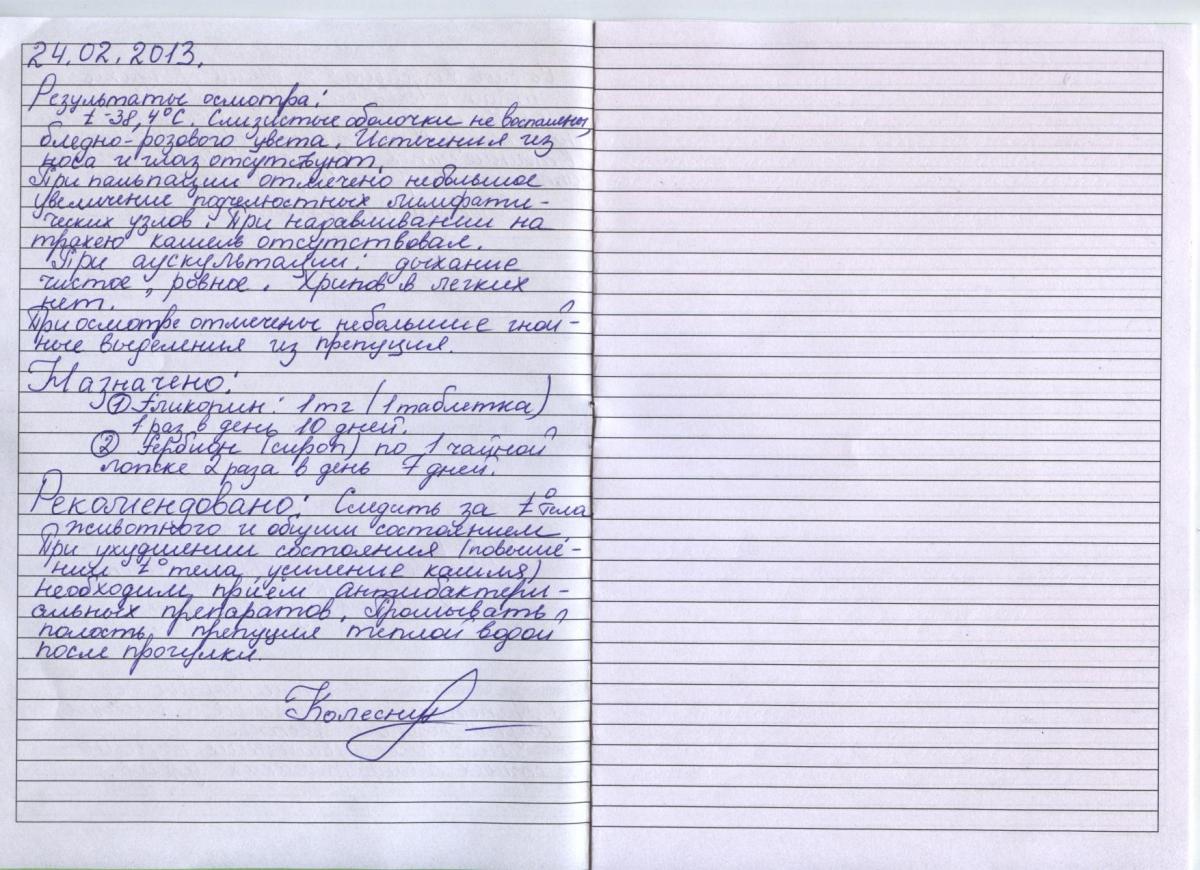 24.02.2013.
Результаты осмотра:
t - 38,4°С. Слизистые оболочки не воспалены,
бледно-розового цвета. Истечения из
носа и глаз отсутствуют.
При пальпации отмечено небольшое
увеличение подчелюстных лимфати-
ческих узлов. При надавливании на
трахею кашель отсутствовал.
При аускультации: дыхание
чистое, ровное. Хрипов в легких
нет.
При осмотре отмечены небольшие гной-
ные выделения из препуция.
Назначено:
① Гликопин: 1 тг (1 таблетка)
1 раз в день 10 дней.
② Гербион (сироп) по 1 чайной
ложке 2 раза в день 7 дней.
Рекомендовано: Следить за t° тела
животного и общим состоянием.
При ухудшении состояния (повыше-
нии t° тела, усиление кашля)
необходим приём антибактери-
альных препаратов. Промывать
полость препуция тёплой водой
после прогулки.
Колесник